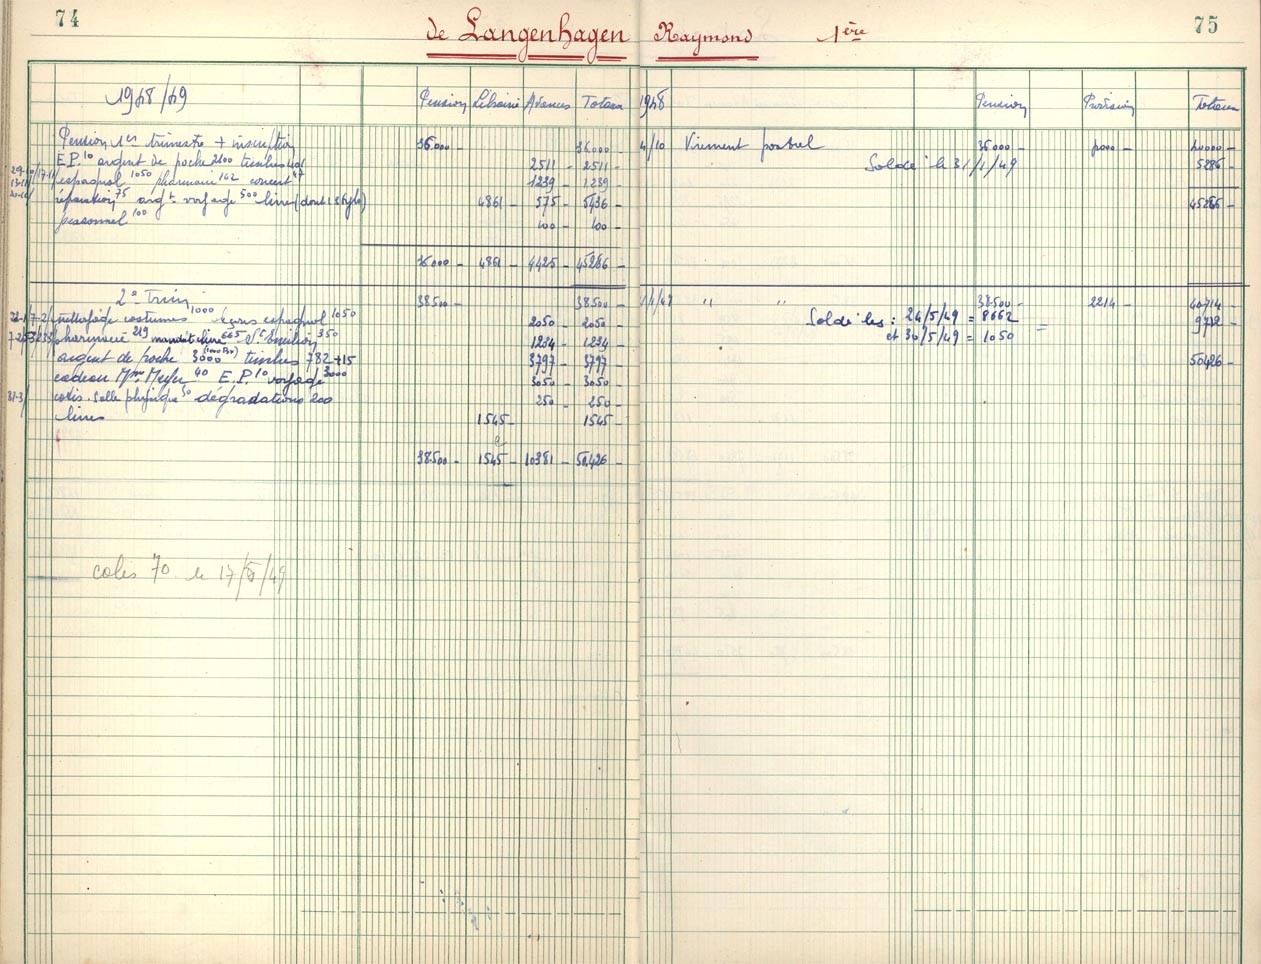 74
de Langenhagen Raymond 1ère
75
1948/49 Pension Librairie Avances Totaux
Pension 1er trimestre + inscription 36.000 - 36.000 -
E.P. 10 argent de poche 2100 timbres 401 2511 - 2511 -
espagnol 1050 pharmacie 142 concert 47 1239 - 1239 -
réparation 75 argt voyage 500 livres (dont 1 stylo) 4861 - 575 - 5436 -
personnel 100 100 - 100 -
36000 - 4861 - 4425 - 45286 -
2e Trim 38.500 - 38.500 -
nettoyage costumes 1000 leçons espagnol 1050 2050 - 2050 -
pharmacie 219 mandat livre 665 St Emilion 350 1234 - 1234 -
argent de poche 3000 timbres 782 + 15 3797 - 3797 -
cadeau Mme Meyer 40 E.P. 10 voyage 3000 3050 - 3050 -
31-3/ cotis. salle physique 50 dégradations 200 250 - 250 -
livres 1545 - 1545 -
38.500 - 1545 - 10381 - 50.426 -
coles 70 le 17/5/49
1948 Pension Provision Totaux
4/10 Virement postal 36000 - 4000 - 40000 -
Soldé le 31/1/49 5286 -
45286 -
" " 38.500 - 2214 - 40714 -
Soldé les : 24/5/49 = 8662
et 30/5/49 = 1050 = 9712 -
50426 -